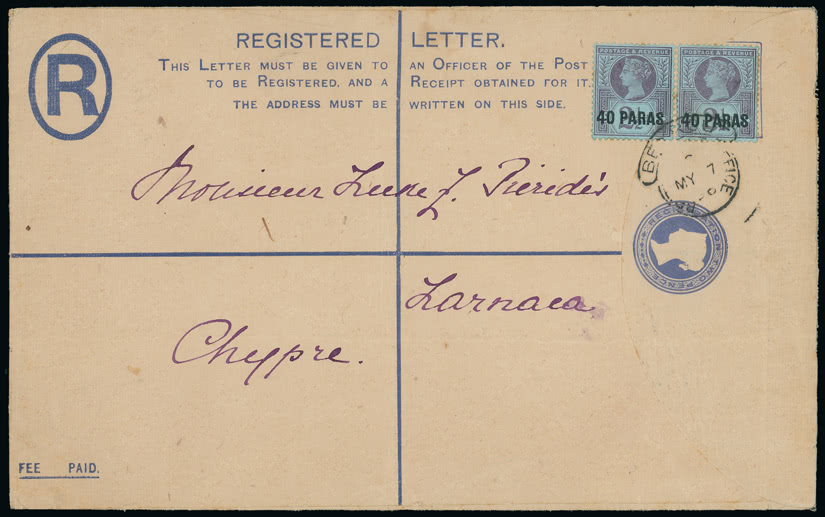 R
REGISTERED LETTER.
THIS LETTER MUST BE GIVEN TO AN OFFICER OF THE POST
TO BE REGISTERED, AND A RECEIPT OBTAINED FOR IT.
THE ADDRESS MUST BE WRITTEN ON THIS SIDE.
POSTAGE & REVENUE POSTAGE & REVENUE
40 PARAS 40 PARAS
MY 7
Monsieur Luke Z. Pieridès
REGISTRATION TWO PENCE
Larnaca
Chypre.
FEE PAID.